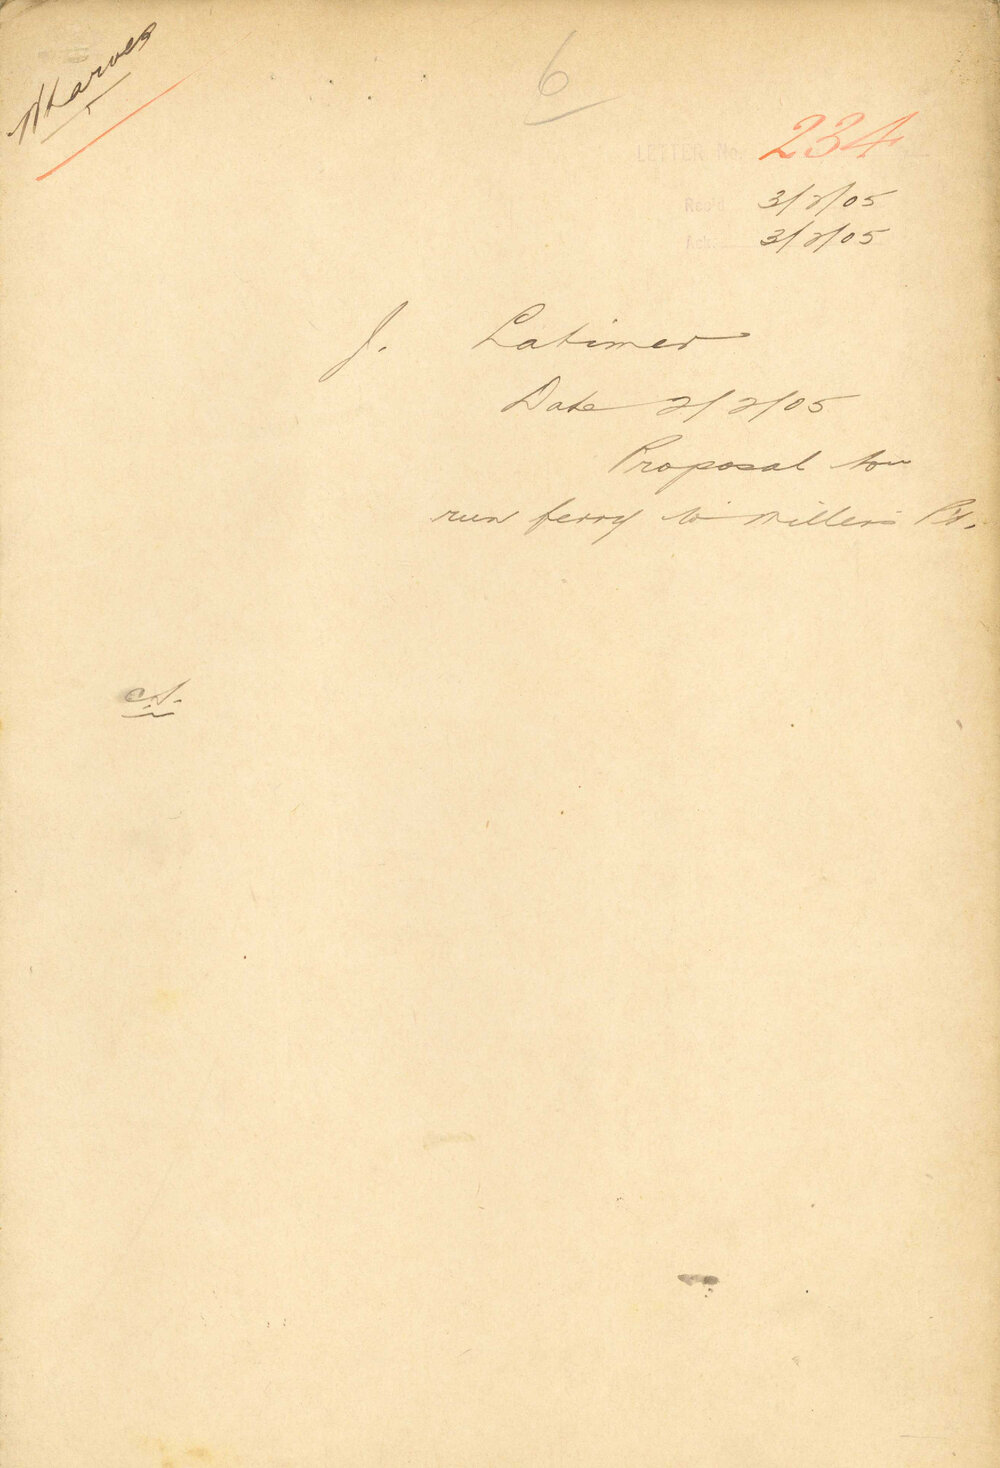 Wharves
6
LETTER No. 234
Rec'd 3/2/05
Ack. 3/2/05
J. Latimer
Date 2/2/05
Proposal to
run ferry to Millers Pt.